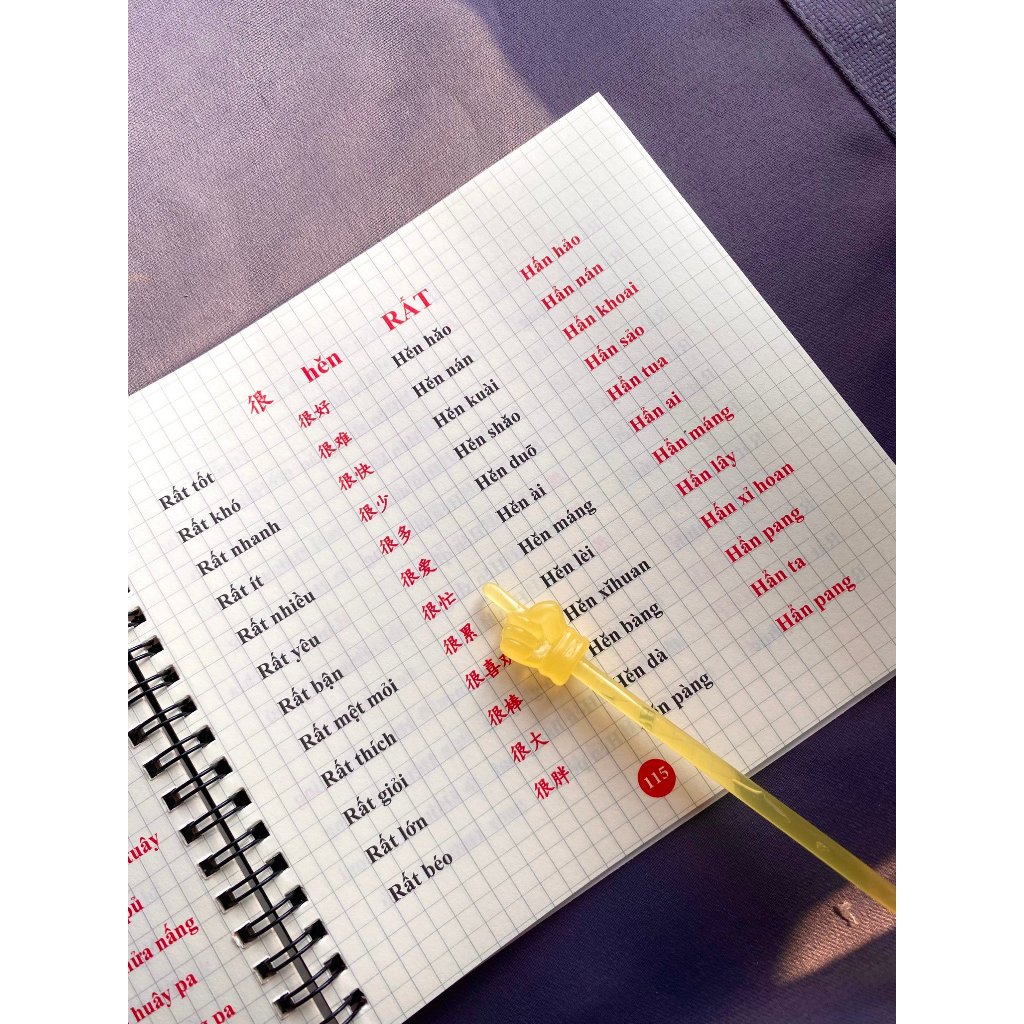 很 hěn RẤT
Rất tốt 很好 Hěn hǎo Hẩn hảo
Rất khó 很难 Hěn nán Hẩn nán
Rất nhanh 很快 Hěn kuài Hẩn khoai
Rất ít 很少 Hěn shǎo Hẩn sảo
Rất nhiều 很多 Hěn duō Hẩn tua
Rất yêu 很爱 Hěn ài Hẩn ai
Rất bận 很忙 Hěn máng Hẩn máng
Rất mệt mỏi 很累 Hěn lèi Hẩn lây
Rất thích 很喜欢 Hěn xǐhuan Hẩn xỉ hoan
Rất giỏi 很棒 Hěn bàng Hẩn pang
Rất lớn 很大 Hěn dà Hẩn ta
Rất béo 很胖 Hěn pàng Hẩn pang
115
huây pa
pa